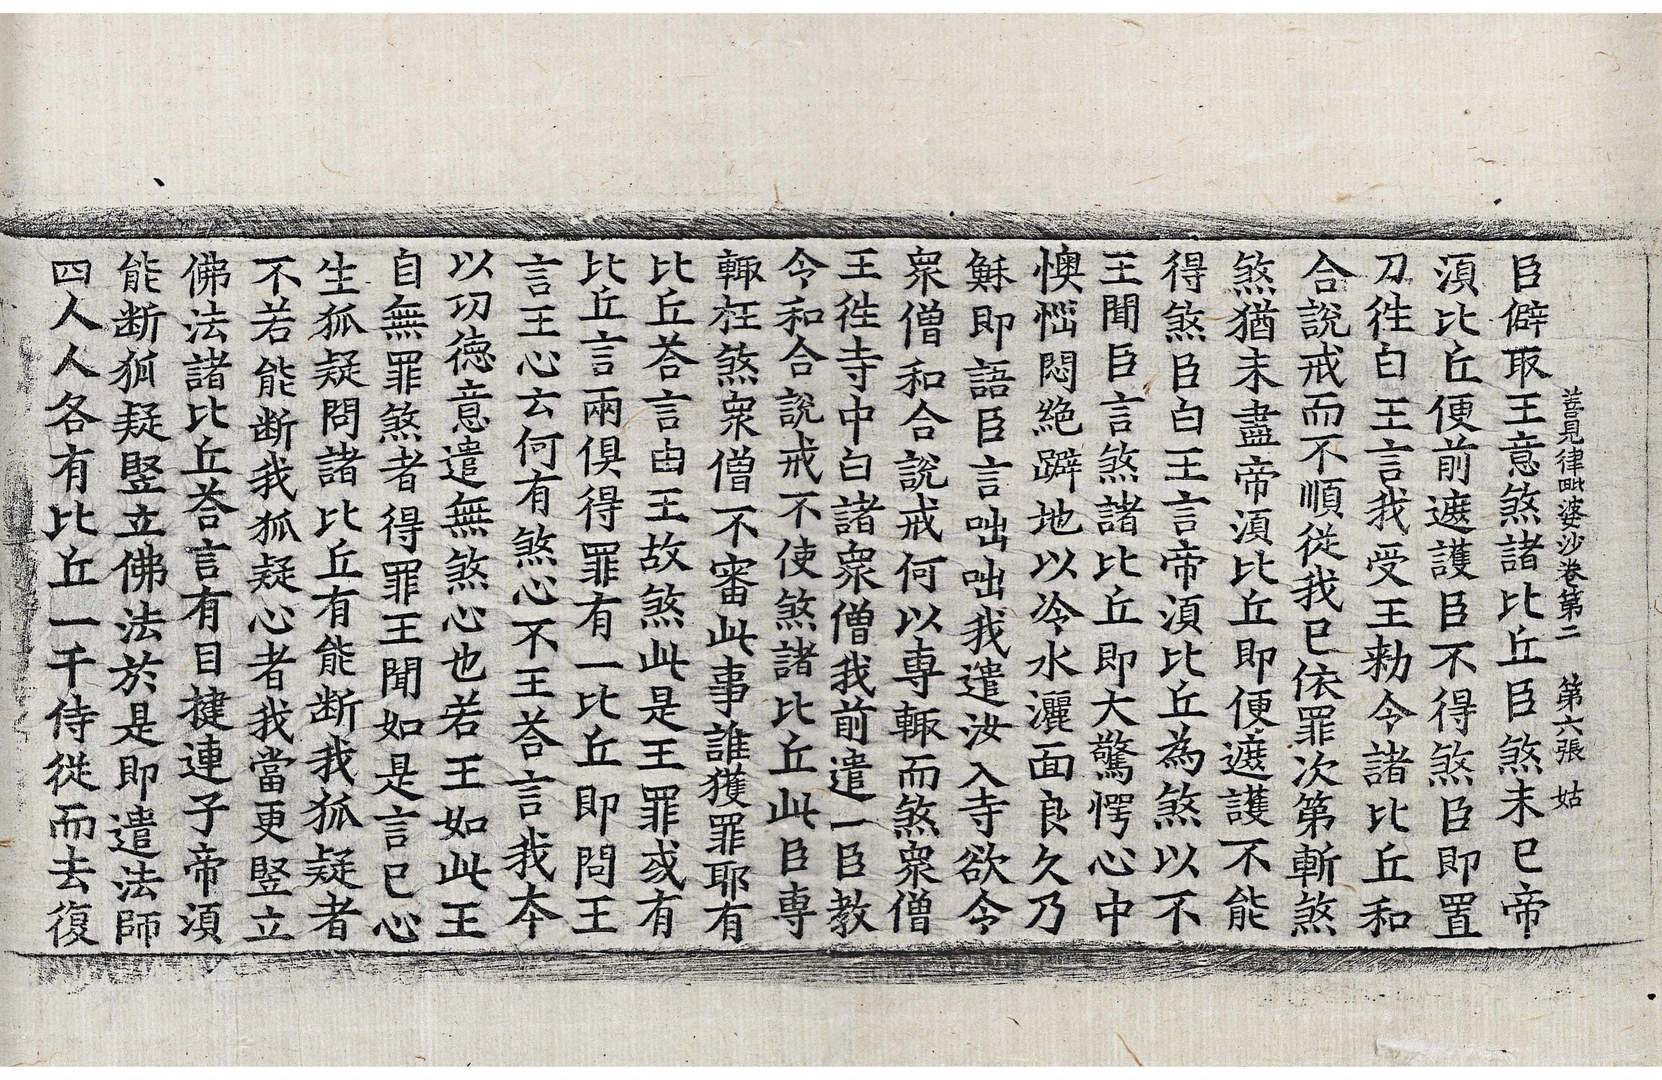 善見律毗婆沙卷第二　第六張　姑
臣僻取王意煞諸比丘臣煞未已帝
湏比丘便前遮護臣不得煞臣即置
刀徃白王言我受王勑令諸比丘和
合說戒而不順從我已依罪次第斬煞
煞猶未盡帝湏比丘即便遮護不能
得煞臣白王言帝湏比丘為煞以不
王聞臣言煞諸比丘即大驚愕心中
懊惱悶絶躃地以冷水灑面良久乃
穌即語臣言咄咄我遣汝入寺欲令
衆僧和合說戒何以專輙而煞衆僧
王徃寺中白諸衆僧我前遣一臣教
令和合說戒不使煞諸比丘此臣專
輙枉煞衆僧不審此事誰獲罪耶有
比丘荅言由王故煞此是王罪或有
比丘言兩俱得罪有一比丘即問王
言王心云何有煞心不王荅言我本
以功德意遣無煞心也若王如此王
自無罪煞者得罪王聞如是言已心
生狐疑問諸比丘有能断我狐疑者
不若能断我狐疑心者我當更竪立
佛法諸比丘荅言有目揵連子帝湏
能断狐疑竪立佛法於是即遣法師
四人人各有比丘一千侍從而去復